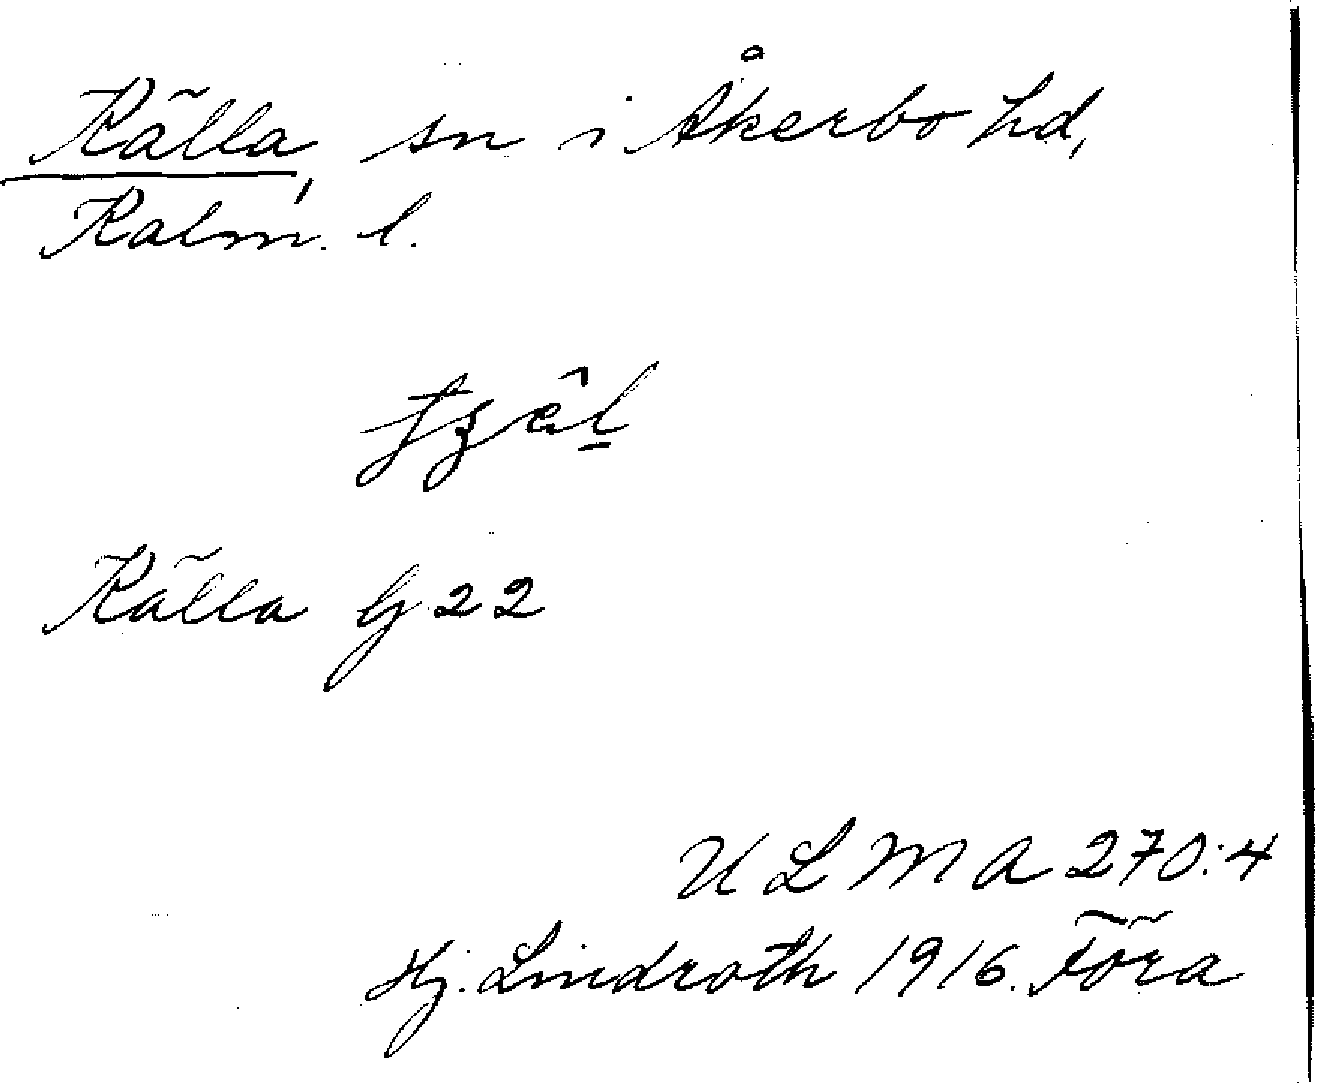 Källa, sn i Åkerbo hd,
Kalm. l.
Källa G 22
U L M A 270:4
Hj. Lindroth 1916. Föra